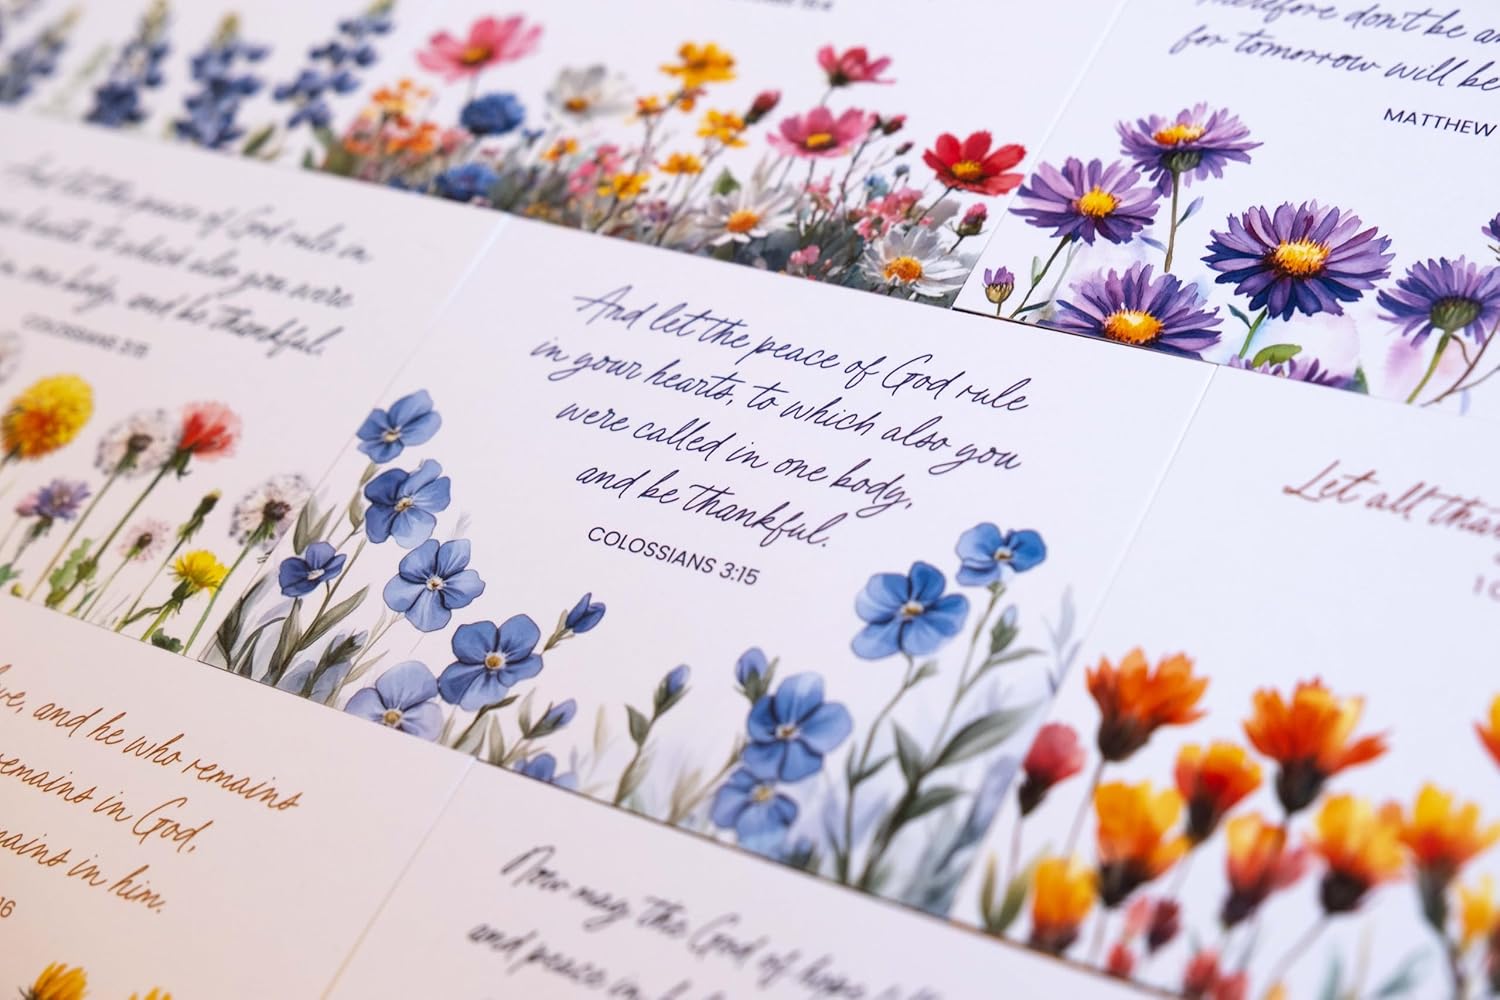 Therefore don't be
for tomorrow will be
MATTHEW
And let the peace of God rule in
hearts, to which also you were
in one body, and be thankful.
COLOSSIANS 3:15
And let the peace of God rule
in your hearts, to which also you
were called in one body,
and be thankful.
COLOSSIANS 3:15
Let all that
and he who remains
remains in God,
remains in him.
16
Now may the God of hope
and peace in